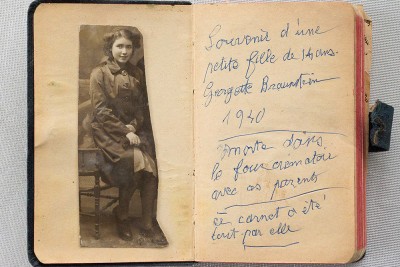 Souvenir d'une
petite fille de 14 ans.
Georgette Braunstein
1940
morte dans
le four crematoire
avec ses parents
ce carnet a été
tout par elle